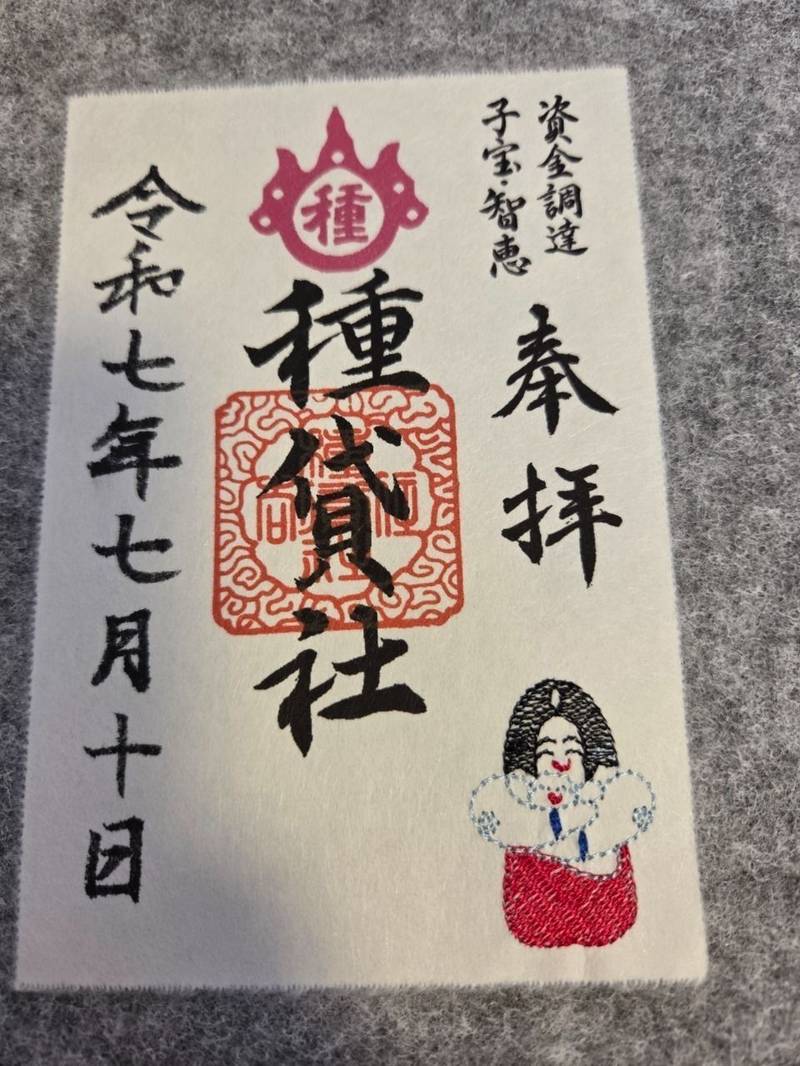 資金調達
子宝・智恵
奉拝
種
種貸社
令和七年七月十日